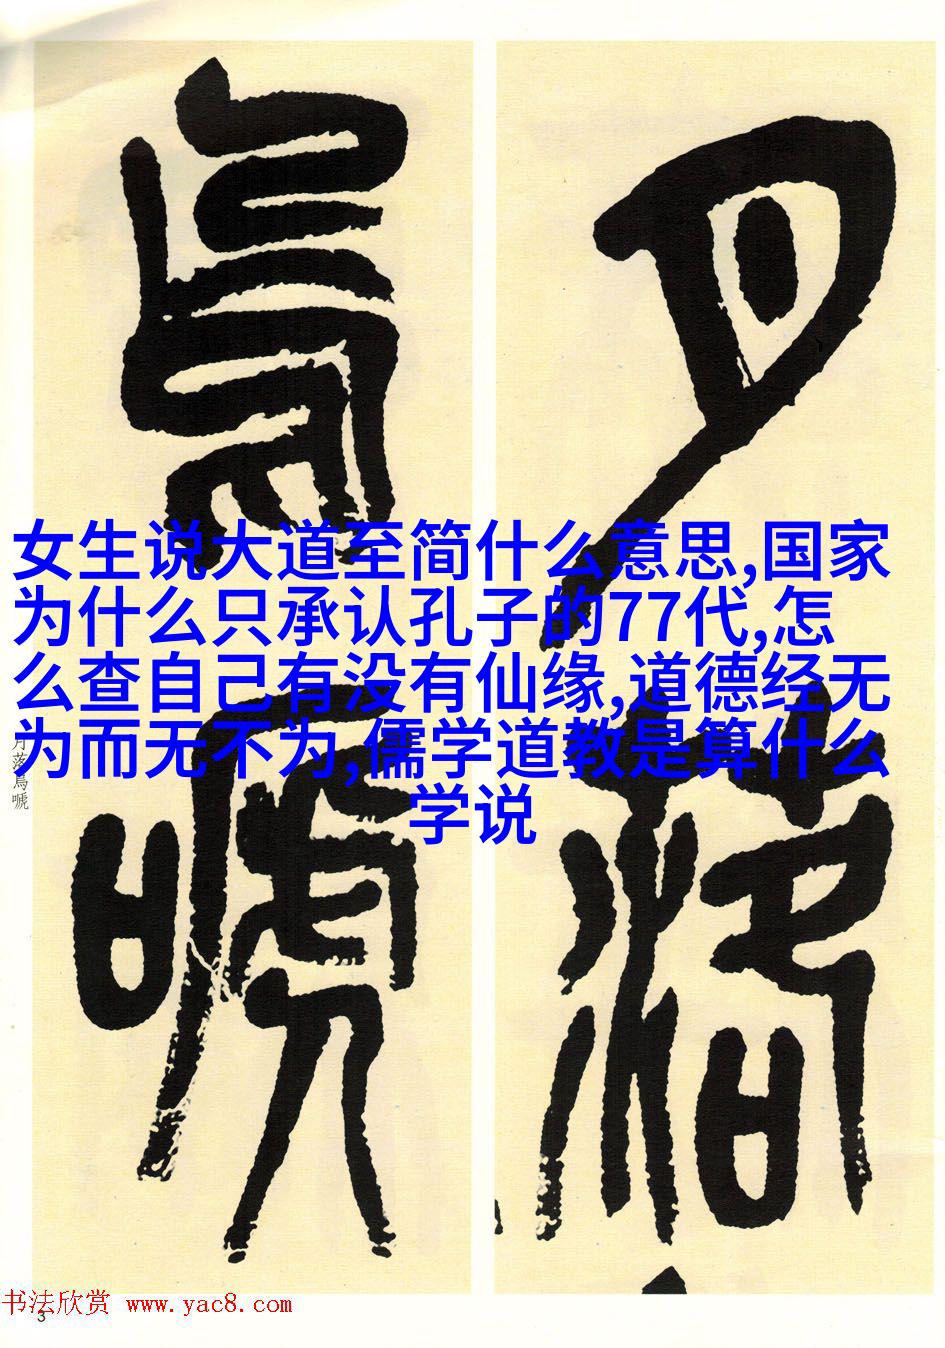 月落
烏嗁
女生说大道至简什么意思,国家
为什么只承认孔子的77代,怎
么查自己有没有仙缘,道德经无
为而无不为,儒学道教是算什么
学说
月落烏嗁
书法欣赏 www.yac8.com
3